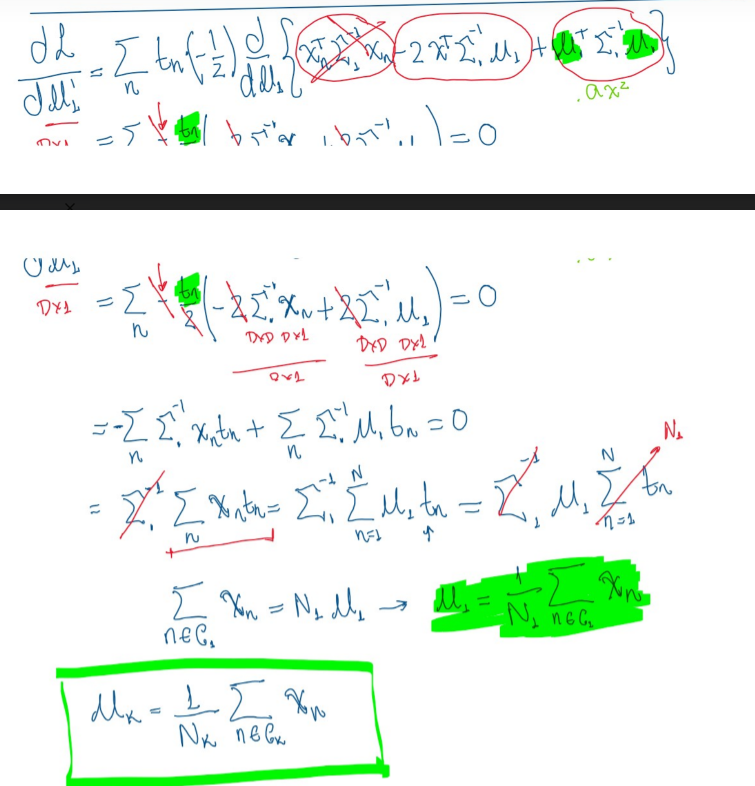 dL/dμ₁ = Σ_n tₙ(-1/2) d/dμ₁ { xₙᵀ Σ₁⁻¹ xₙ - 2 xᵀ Σ₁⁻¹ μ₁ + μ₁ᵀ Σ₁⁻¹ μ₁ }
. ax²
= 0
dμ₁
D×1 = Σ_n - tₙ/2 ( - 2 Σ₁⁻¹ xₙ + 2 Σ₁⁻¹ μ₁ ) = 0
D×D D×1 D×D D×1
D×1 D×1
= - Σ_n Σ₁⁻¹ xₙ tₙ + Σ_n Σ₁⁻¹ μ₁ tₙ = 0
N₁
= Σ₁⁻¹ Σ_n xₙ tₙ = Σ₁⁻¹ Σ_{n=1}^N μ₁ tₙ = Σ₁⁻¹ μ₁ Σ_{n=1}^N tₙ
Σ_{n∈C₁} xₙ = N₁ μ₁ → μ₁ = 1/N₁ Σ_{n∈C₁} xₙ
μ_k = 1/N_k Σ_{n∈C_k} xₙ